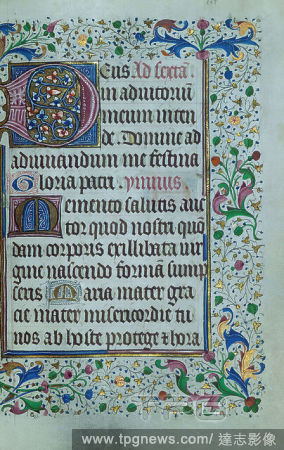 Deus Ad sextā
in adiutoriū
meum inten
de. Domine ad
adiuuandum me festina
Gloria patri. ymnus
Memento salutis auc
tor quod nostri quo
dam corporis ex illibata vir
gine nascendo formā sump
seris Maria mater gra
cie mater misericordie tu
nos ab hoste protege & hora
www.tpgnews.com/ 達志影像